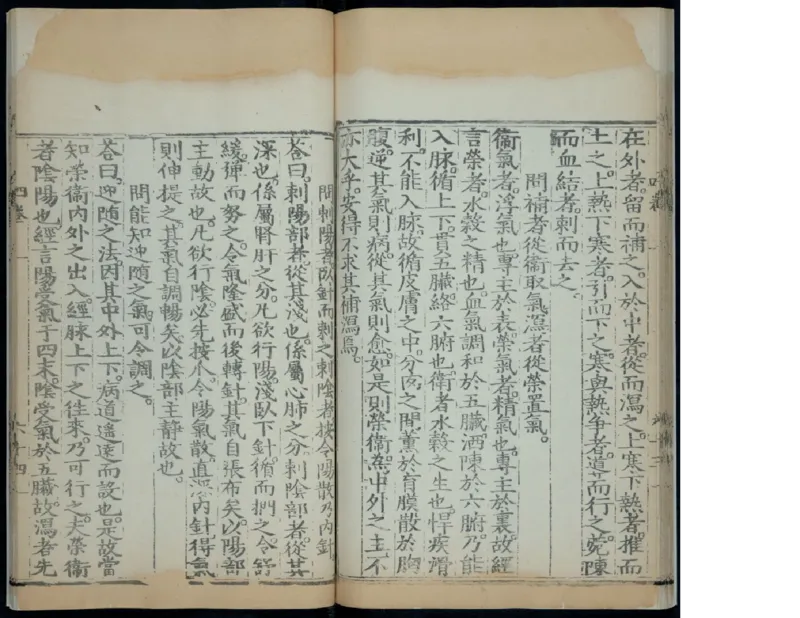 在外者。留而補之。入於中者。從而瀉之。上寒下熱者。推而
上之。上熱下寒者。引而下之。寒與熱爭者。導而行之。菀陳
而血結者。刺而去之。
問補者從衞取氣。瀉者從榮置氣。
衞氣者。浮氣也。專主於表。榮氣者。精氣也。專主於裏。故經
言榮者。水穀之精也。血氣調和於五臟。洒陳於六腑。乃能
入脉。循上下。貫五臟。絡六腑也。衞者水穀之生也。悍疾滑
利。不能入脉。故循皮膚之中。分肉之間。薰於肓膜。散於胸
腹。逆其氣則病。從其氣則愈。如是則榮衞為中外之主。不
亦大乎。安得不求其補瀉焉。
問刺陽者臥針而刺之刺陰者按令陽散乃內針
荅曰。刺陽部者。從其淺也。係屬心肺之分。刺陰部者。從其
深也。係屬腎肝之分。凡欲行陽。淺臥下針。循而捫之。令舒
緩。彈而努之。令氣隆盛而後轉針。其氣自張布矣。以陽部
主動故也。凡欲行陰。必先按小令陽氣散。直深內針。得氣
則伸提之。其氣自調暢矣。以陰部主靜故也。
問能知迎隨之氣。可令調之。
荅曰。迎隨之法。因其中外上下。病道遙遠而設也。是故當
知榮衞內外之出入。經脉上下之往來。乃可行之。夫榮衞
者陰陽也。經言陽受氣于四末。陰受氣於五臟。故瀉者先
四卷